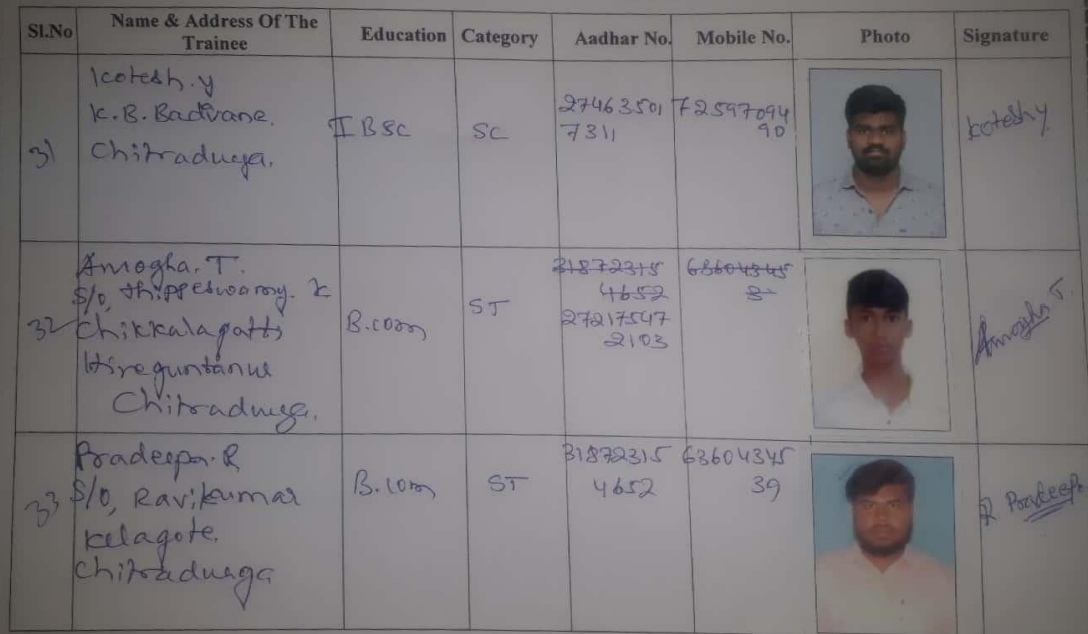 Sl.No Name & Address Of The Trainee Education Category Aadhar No. Mobile No. Photo Signature
31
Kotesh.y
K.B. Badvane.
Chitradurga.
II BSC
SC
27463501
7311
72597094
90
Kotesh y
32
Amogha. T.
S/o, thippeswamy. K
Chikkalagatti
Hireguntanur
Chitradurga.
B.com
ST
31872315
4652
27217547
2103
63604345
3
Amogha T.
33
Pradeepa. R
S/o, Ravikumar
Kelagote.
Chitradurga
B.com
ST
31872315
4652
63604345
39
R Pradeepa